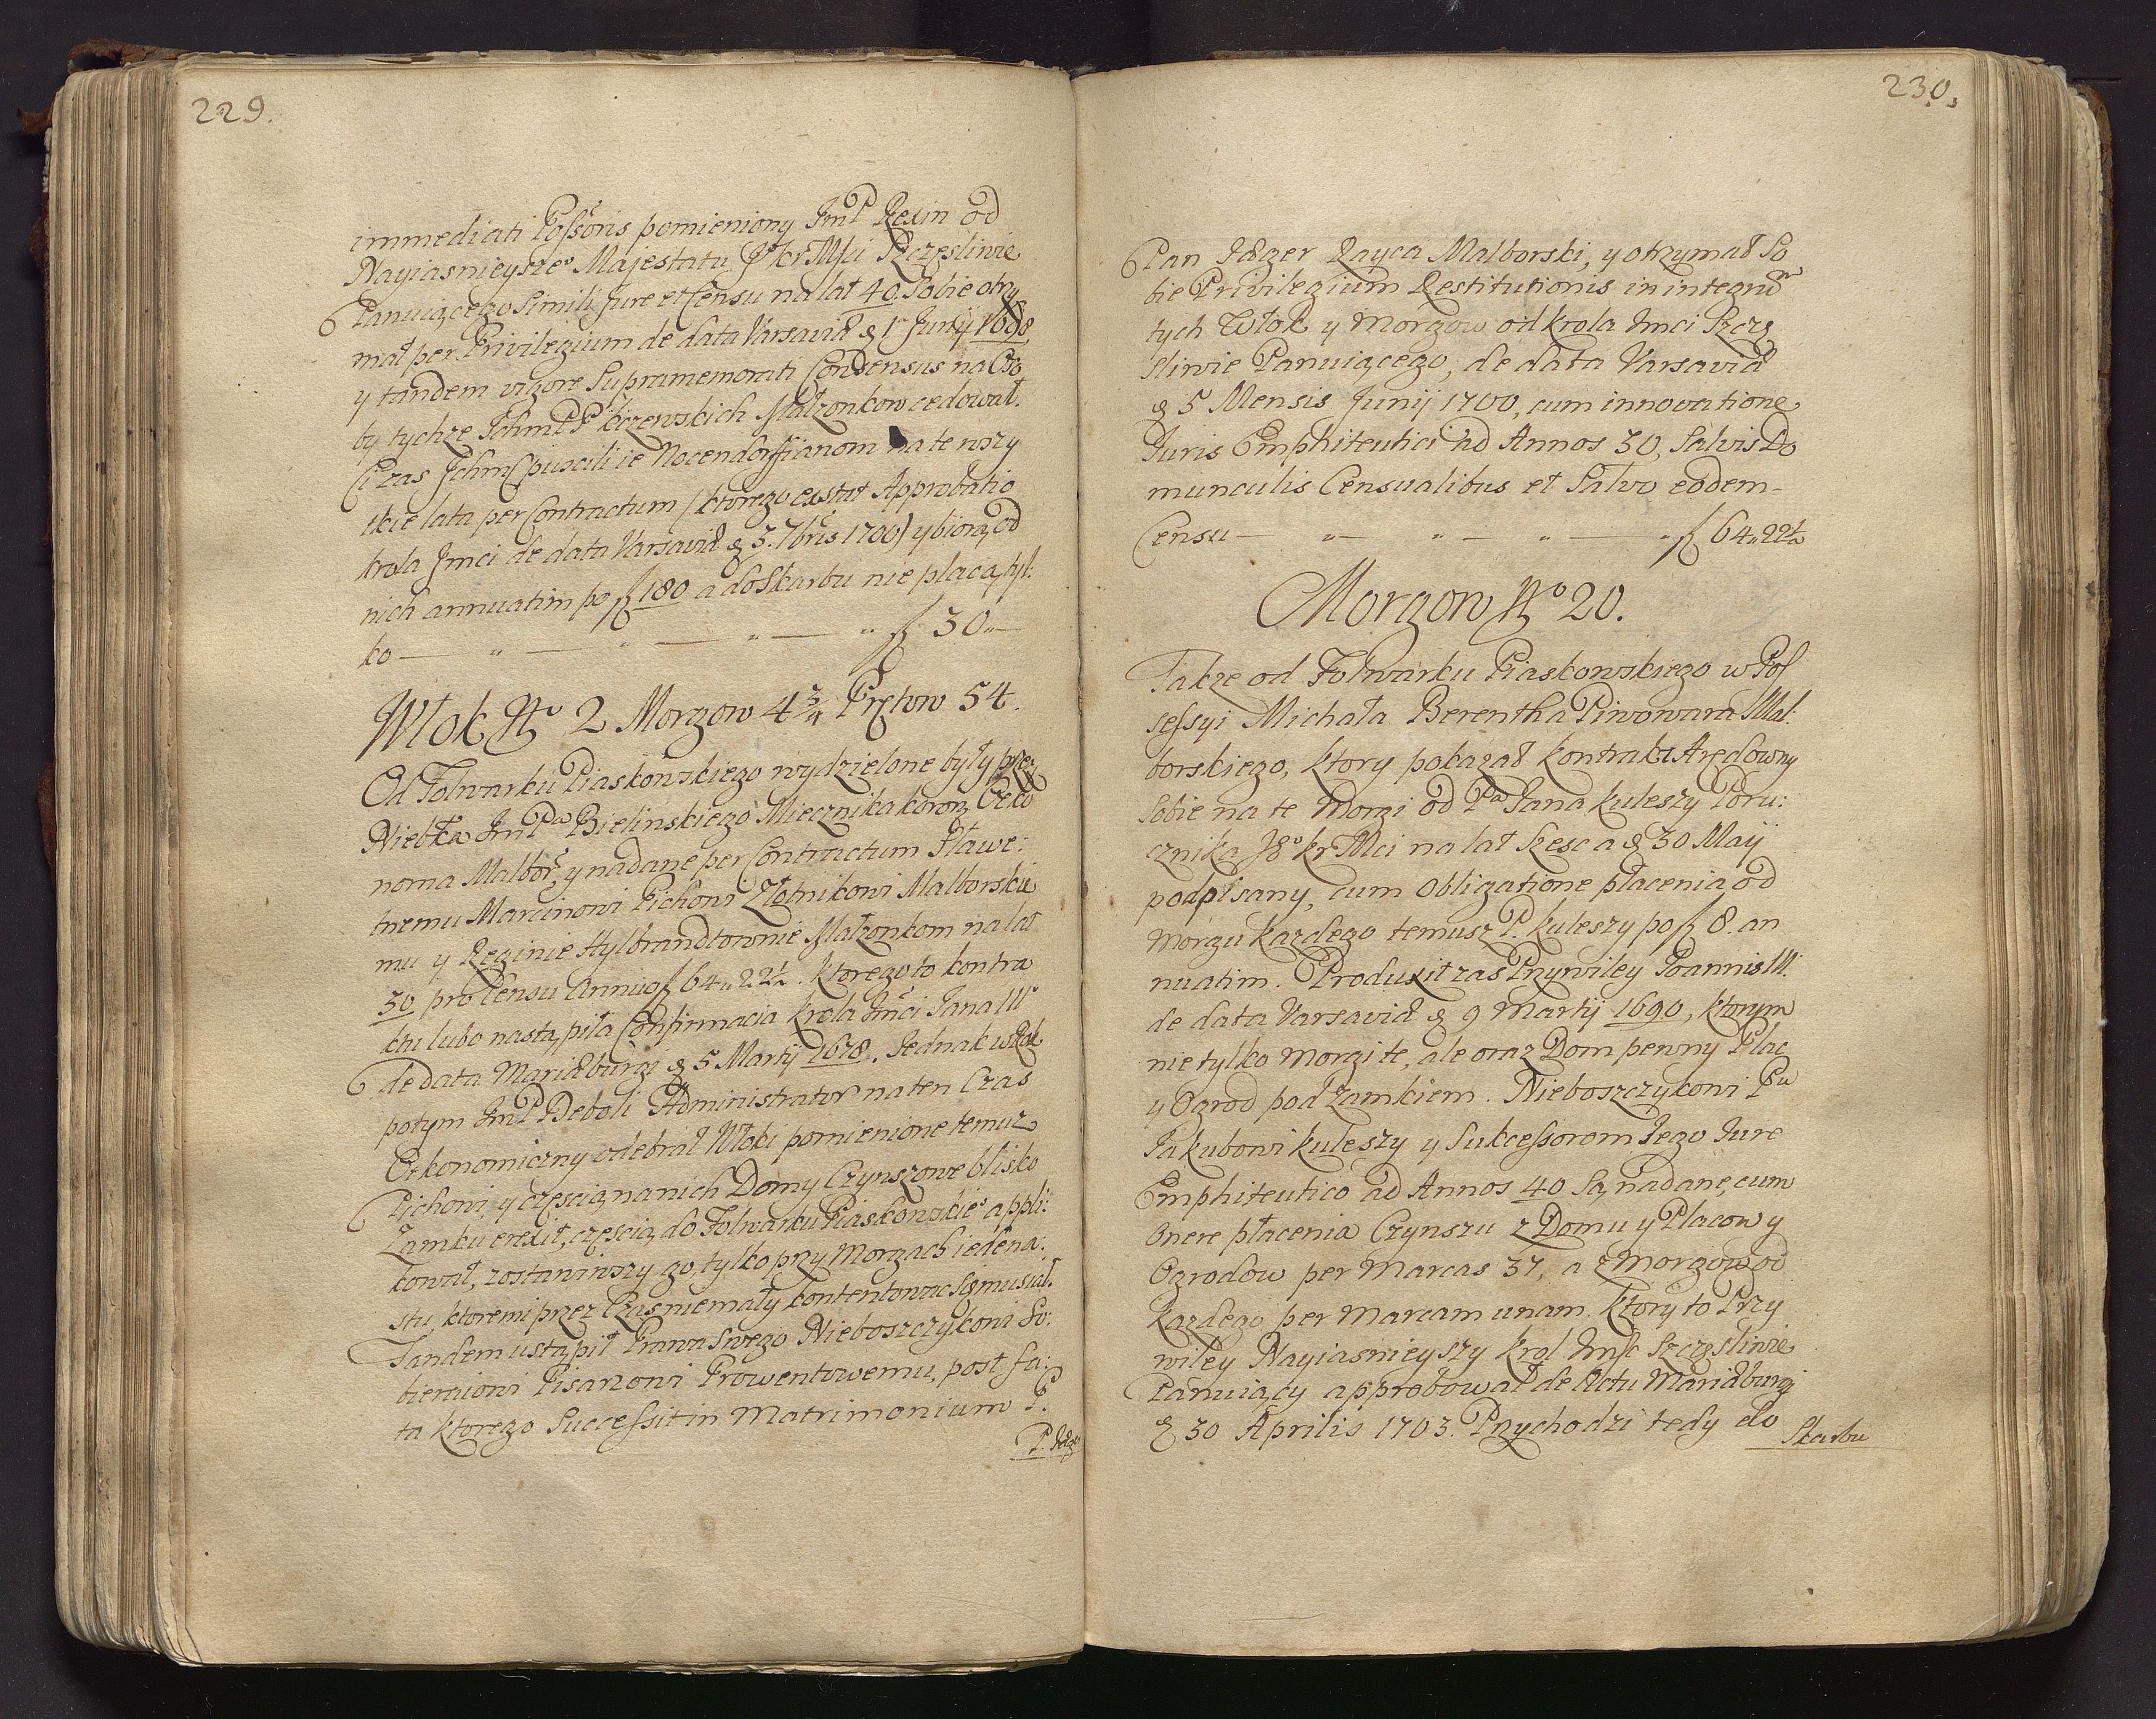 229.
immediati Possoris pomieniony JmP Rexin od
Nayiasnieyszeo Majestatu Jo Kr Mci Szczęsliwie
Panuiącego Simili Jure et Censu na lat 40. Sobie otrzy
mał per Privilegium de data Varsaviæ d 1 Junij 1698
y tandem vigore Supramemorati Consensus na Oso
by tychze IchmPP Małzonkow cedował.
Ci zas Ichmć puscili ie Nocendorffianom na te wszy
tkie lata per Contractum (ktorego extat Approbatio
krola Jmci de data Varsaviæ d 3. 7bris 1700) y biorą od
nich annuatim po f 180 a do Skarbu nie płacą tyl:
ko — " — " — " — " f 30 "—
Włok No 2 Morgow 4 3/4 Prętow 54.
Od Folwarku Piaskowskiego wydzielone były przez
Niebka JmPa Bielinskiego Miecznika koron: Oeko
noma Malbor: y nadane per Contractum Sławe:
tnemu Marcinowi Pichowi Złotnikowi Malborskie
mu y Reginie Hylbrandtownie Małzonkom na lat
30 pro Censu Annuo f 64 " 22 1/2. Ktorego to kontra
ktu lubo nastąpiła Confirmacia Krola Jmci Jana III
de data Mariæburgi d 5 Martij 1678. Jednak wkrot
potym JmP Deboli Administrator na ten Czas
Oekonomiczny odebrał Włoki pomienione temuz
Pichowi, y częscią na nich Domy Czynszowe blisko
Zamku erexit, częscią do Folwarku Piaskowskieo appli:
kował, zostawiwszy go tylko przy Morgach iedena:
stu, ktoremi przez Czas niemały kontentowac się musiał.
Tandem ustąpił Prawa Swego Nieboszczykowi So:
bieraiowi Pisarzowi Prowentowemu, post fa:
ta ktorego Successit in Matrimonium J.
P. Jæger
230.
Pan Jæger Rayca Malborski, y otrzymał So
bie Privilegium Restitutionis in integrũ
tych Włok y Morgow od krola Jmci Szczę
sliwie Panuiącego, de data Varsaviæ
d 5 Mensis Junij 1700, cum innovatione
Juris Emphiteutici ad Annos 30, Salvis Do
munculis Censualibus et Salvo eodem-
Censu — " — " — " — " f 64 " 22 1/2
Morgow No 20.
Takze od Folwarku Piaskowskiego w Pos
sessyi Michała Berentha Piwowara Mal:
borskiego, ktory pokazał kontrakt Arędowny
Sobie na te Morgi od Pa Jana Kuleszy Poru:
cznika Jo Kr Mci na lat Szesc a d 30 Maij
podpisany, cum Obligatione płacenia od
Morgu kazdego temusz P. Kuleszy po f 8. an
nuatim. Produxit zas Przywiley Joannis III.
de data Varsaviæ d 9 Martij 1690, ktorym
nie tylko Morgi te, ale oraz Dom pewny Plac
y Ogrod pod Zamkiem. Nieboszczykowi Pu
Jakubowi Kuleszy y Sukcessorom Jego Jure
Emphiteutico ad Annos 40 są nadane, cum
Onere płacenia Czynszu z Domu y Placow y
Ogrodow per Marcas 37, a z Morgow od
kazdego per Marcam unam. Ktory to Przy
wiley Nayiasnieyszy Krol Jmsc Szczęsliwie
Panuiący approbował de Actu Mariæburgi
d 30 Aprilis 1703. Przychodzi tedy do
Skarbu